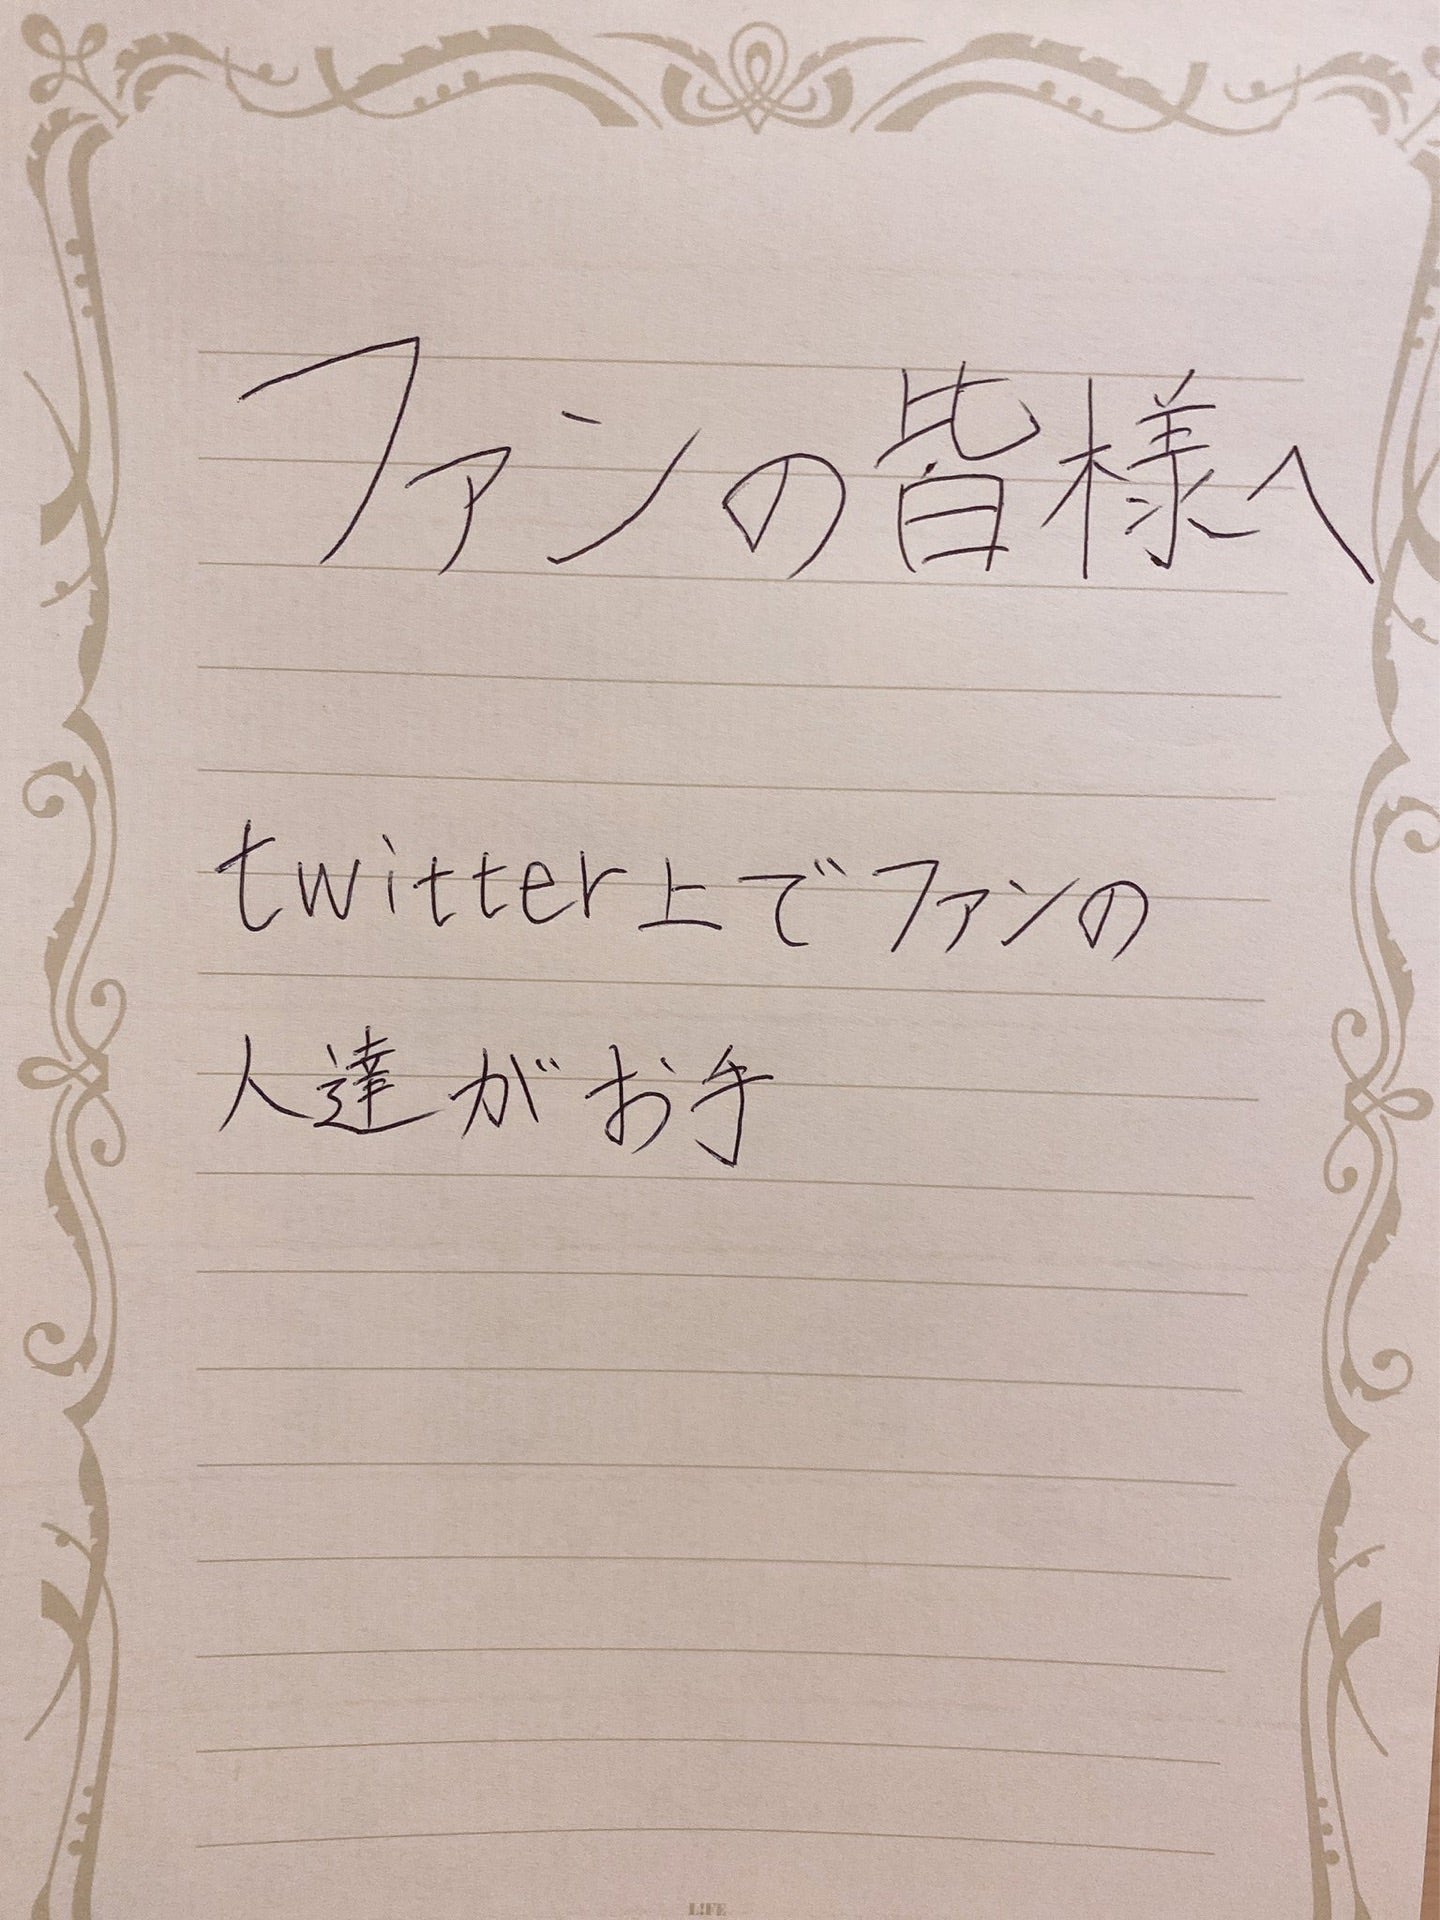 ファンの皆様へ
twitter上でファンの
人達がお手
L!FE